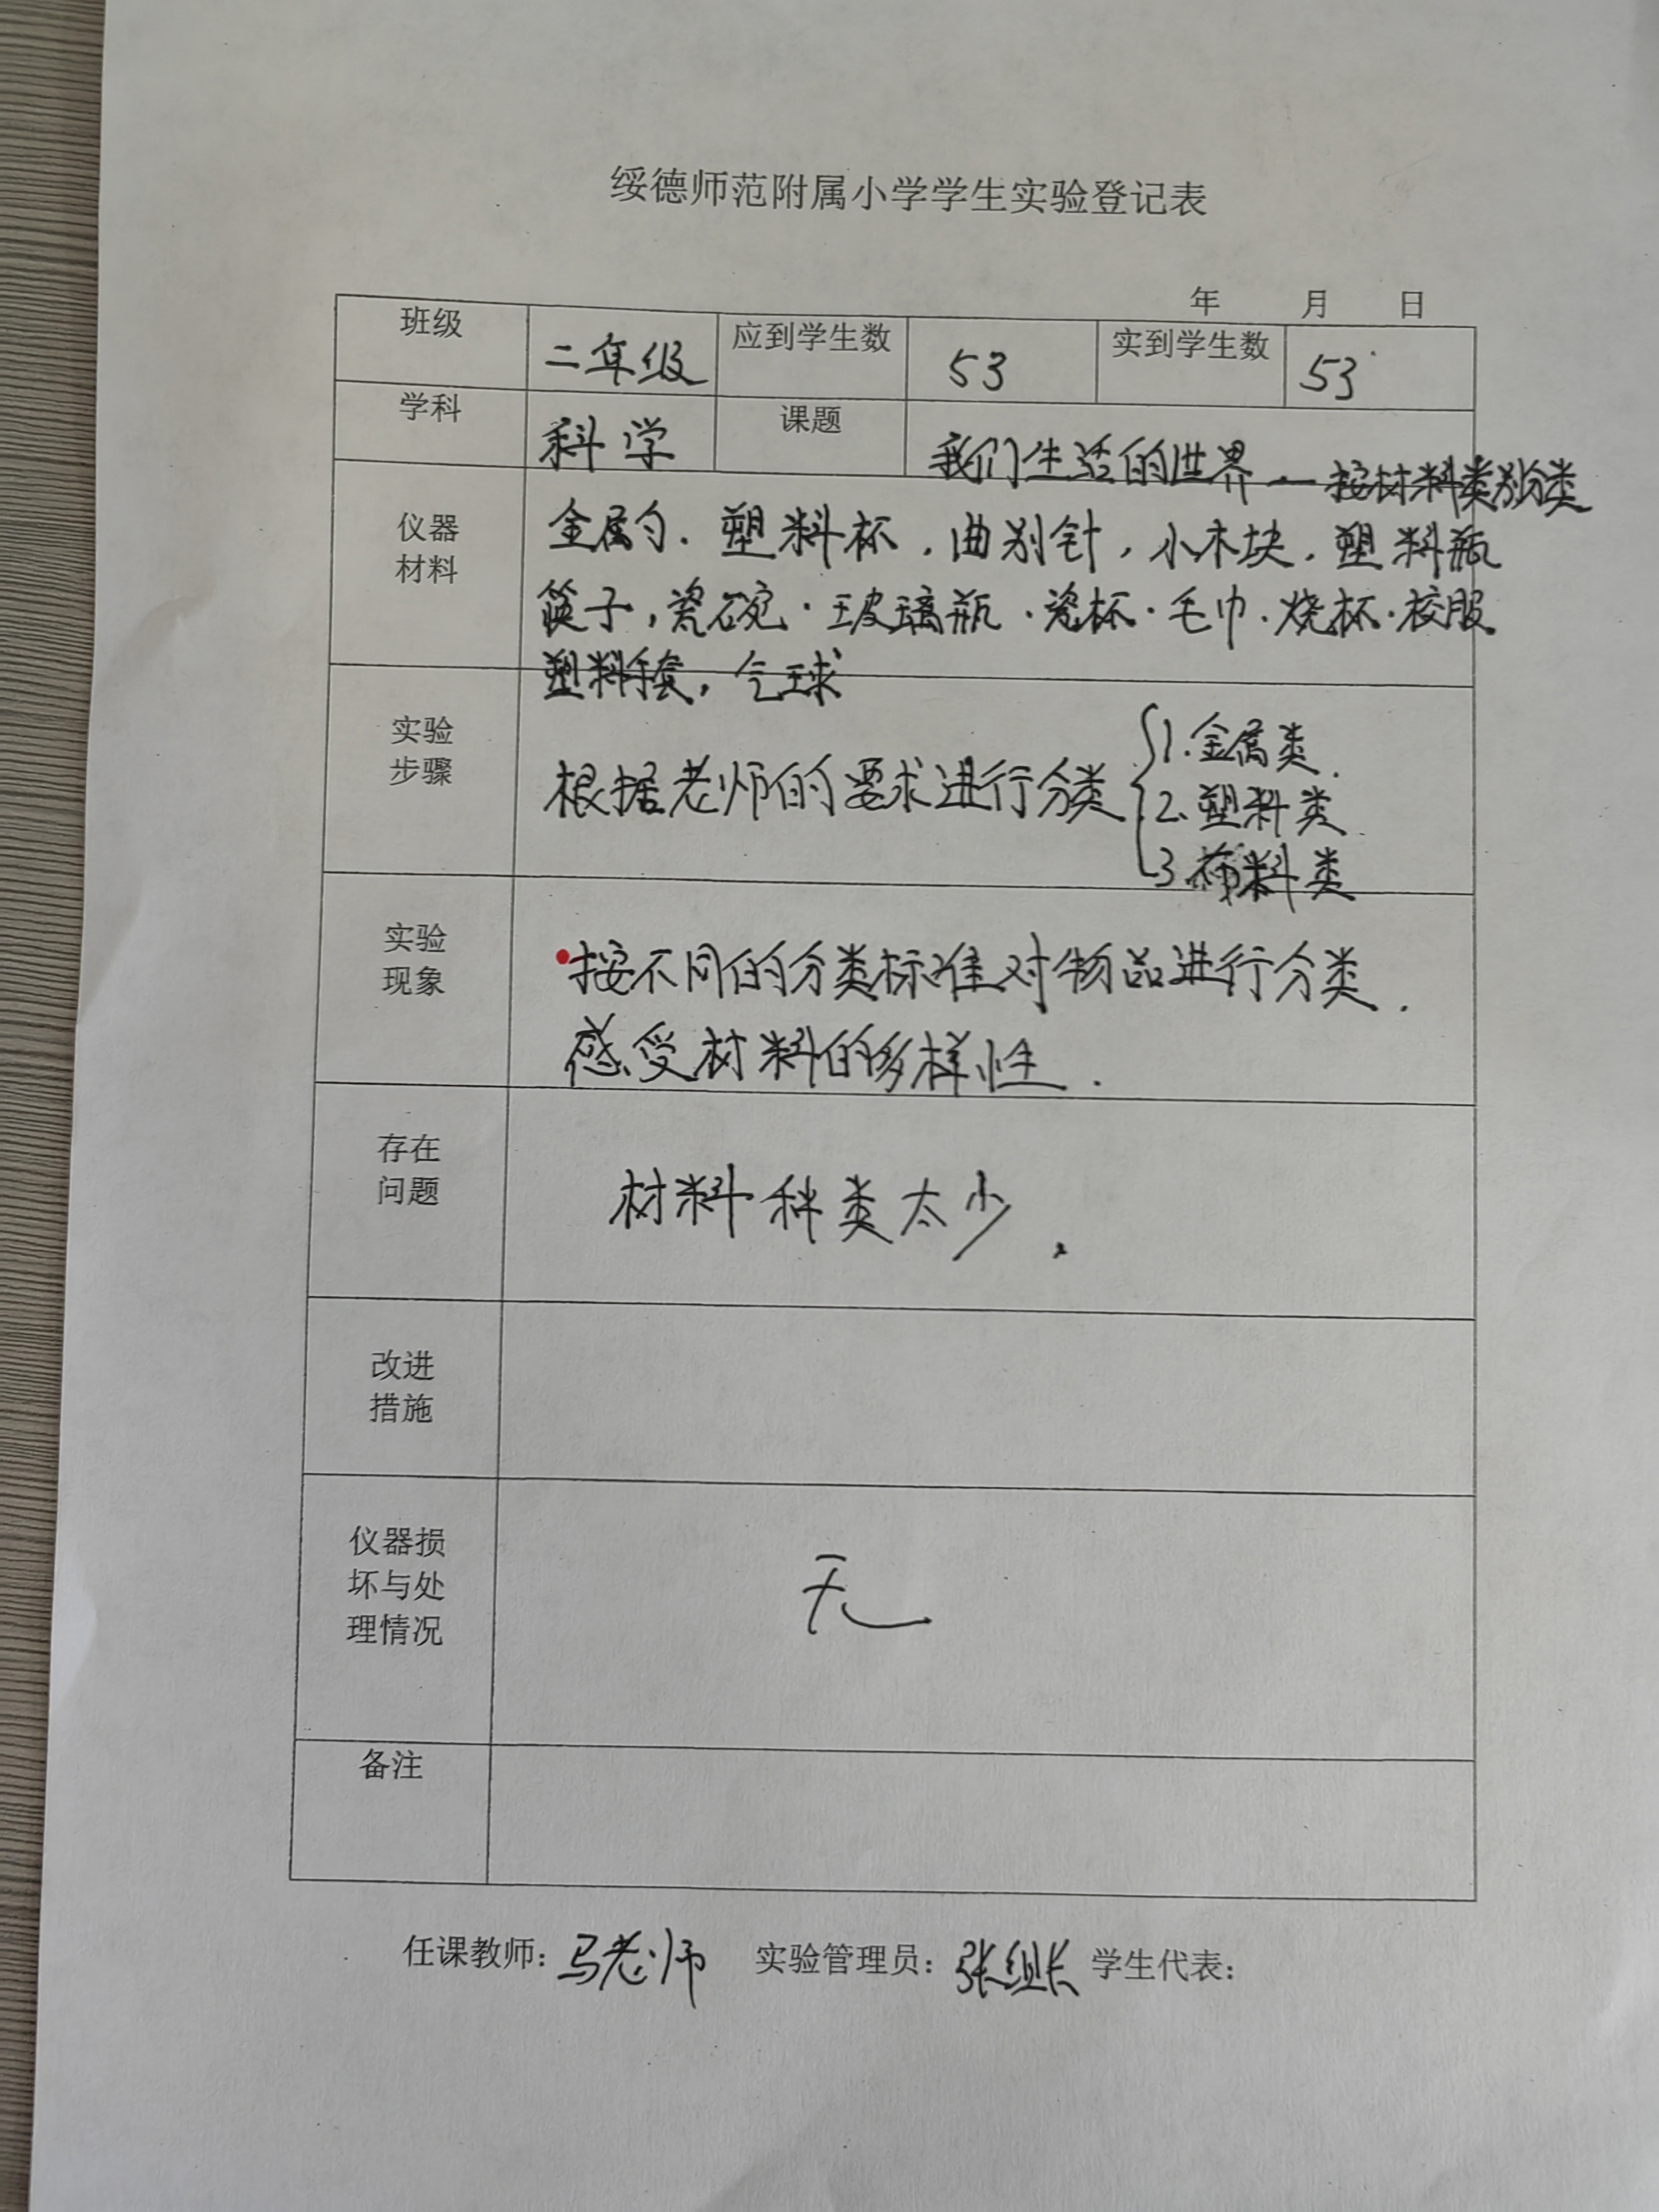 绥德师范附属小学学生实验登记表
年 月 日
班级 二年级 应到学生数 53 实到学生数 53
学科 科学 课题 我们生活的世界—按材料类别分类
仪器材料 金属勺、塑料杯，曲别针，小木块，塑料瓶
筷子，瓷碗·玻璃瓶·瓷杯·毛巾·烧杯·校服
塑料手套，气球
实验步骤 根据老师的要求进行分类
1.金属类.
2.塑料类
3.布料类
实验现象 按不同的分类标准对物品进行分类.
感受材料的多样性.
存在问题 材料种类太少.
改进措施
仪器损坏与处理情况 无
备注
任课教师：马老师 实验管理员：张组长 学生代表：